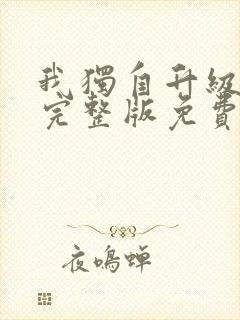 我獨自升級
完整版免費
夜鳴蝉